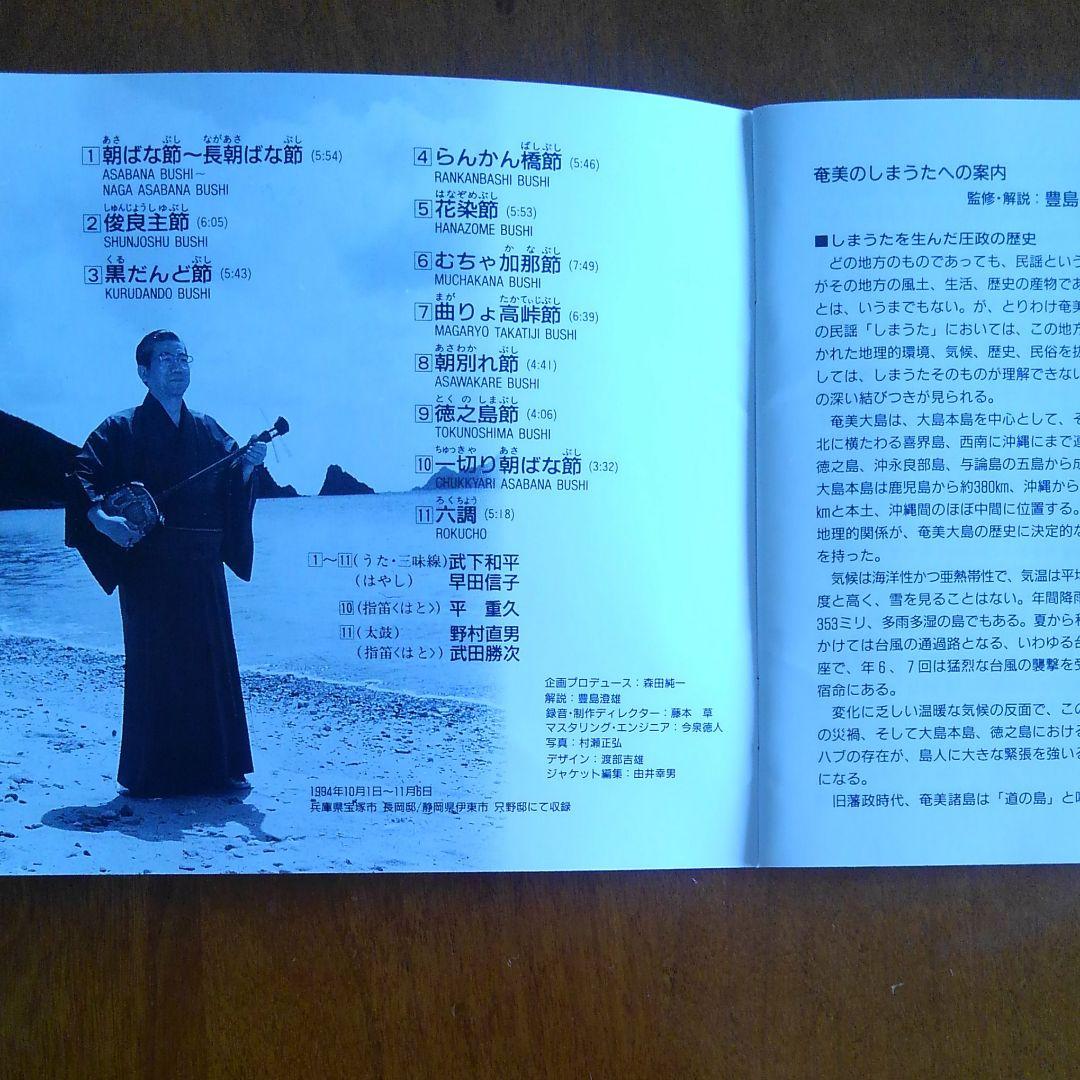 あさ ぶし ながあさ ぶし
1 朝ばな節〜長朝ばな節 (5:54)
ASABANA BUSHI〜
NAGA ASABANA BUSHI
しゅんじょうしゅぶし
2 俊良主節 (6:05)
SHUNJOSHU BUSHI
くる ぶし
3 黒だんど節 (5:43)
KURUDANDO BUSHI
ばしぶし
4 らんかん橋節 (5:46)
RANKANBASHI BUSHI
はなぞめぶし
5 花染節 (5:53)
HANAZOME BUSHI
かなぶし
6 むちゃ加那節 (7:49)
MUCHAKANA BUSHI
まが たかてぃじぶし
7 曲りょ高峠節 (6:39)
MAGARYO TAKATIJI BUSHI
あさわか ぶし
8 朝別れ節 (4:41)
ASAWAKARE BUSHI
とくのしまぶし
9 徳之島節 (4:06)
TOKUNOSHIMA BUSHI
ちゅっきゃ あさ ぶし
10 一切り朝ばな節 (3:32)
CHUKKYARI ASABANA BUSHI
ろくちょう
11 六調 (5:18)
ROKUCHO
1〜11(うた・三味線)武下和平
(はやし) 早田信子
10(指笛〈はと〉)平 重久
11(太鼓) 野村直男
(指笛〈はと〉)武田勝次
企画プロデュース:森田純一
解説:豊島澄雄
録音・制作ディレクター:藤本 草
マスタリング・エンジニア:今泉徳人
写真:村瀬正弘
デザイン:渡部吉雄
ジャケット編集:由井幸男
1994年10月1日〜11月6日
兵庫県宝塚市 長岡邸/静岡県伊東市 只野邸にて収録
奄美のしまうたへの案内
監修・解説:豊島
■しまうたを生んだ圧政の歴史
どの地方のものであっても、民謡という
がその地方の風土、生活、歴史の産物であ
とは、いうまでもない。が、とりわけ奄美
の民謡「しまうた」においては、この地方
かれた地理的環境、気候、歴史、民俗を抜
しては、しまうたそのものが理解できない
の深い結びつきが見られる。
奄美大島は、大島本島を中心として、そ
北に横たわる喜界島、西南に沖縄にまで連
徳之島、沖永良部島、与論島の五島から成
大島本島は鹿児島から約380km、沖縄から
kmと本土、沖縄間のほぼ中間に位置する。
地理的関係が、奄美大島の歴史に決定的な
を持った。
気候は海洋性かつ亜熱帯性で、気温は平均
度と高く、雪を見ることはない。年間降雨
353ミリ、多雨多湿の島でもある。夏から秋
かけては台風の通過路となる、いわゆる台
座で、年6、7回は猛烈な台風の襲撃を受
宿命にある。
変化に乏しい温暖な気候の反面で、この
の災禍、そして大島本島、徳之島における
ハブの存在が、島人に大きな緊張を強いる
になる。
旧藩政時代、奄美諸島は「道の島」と